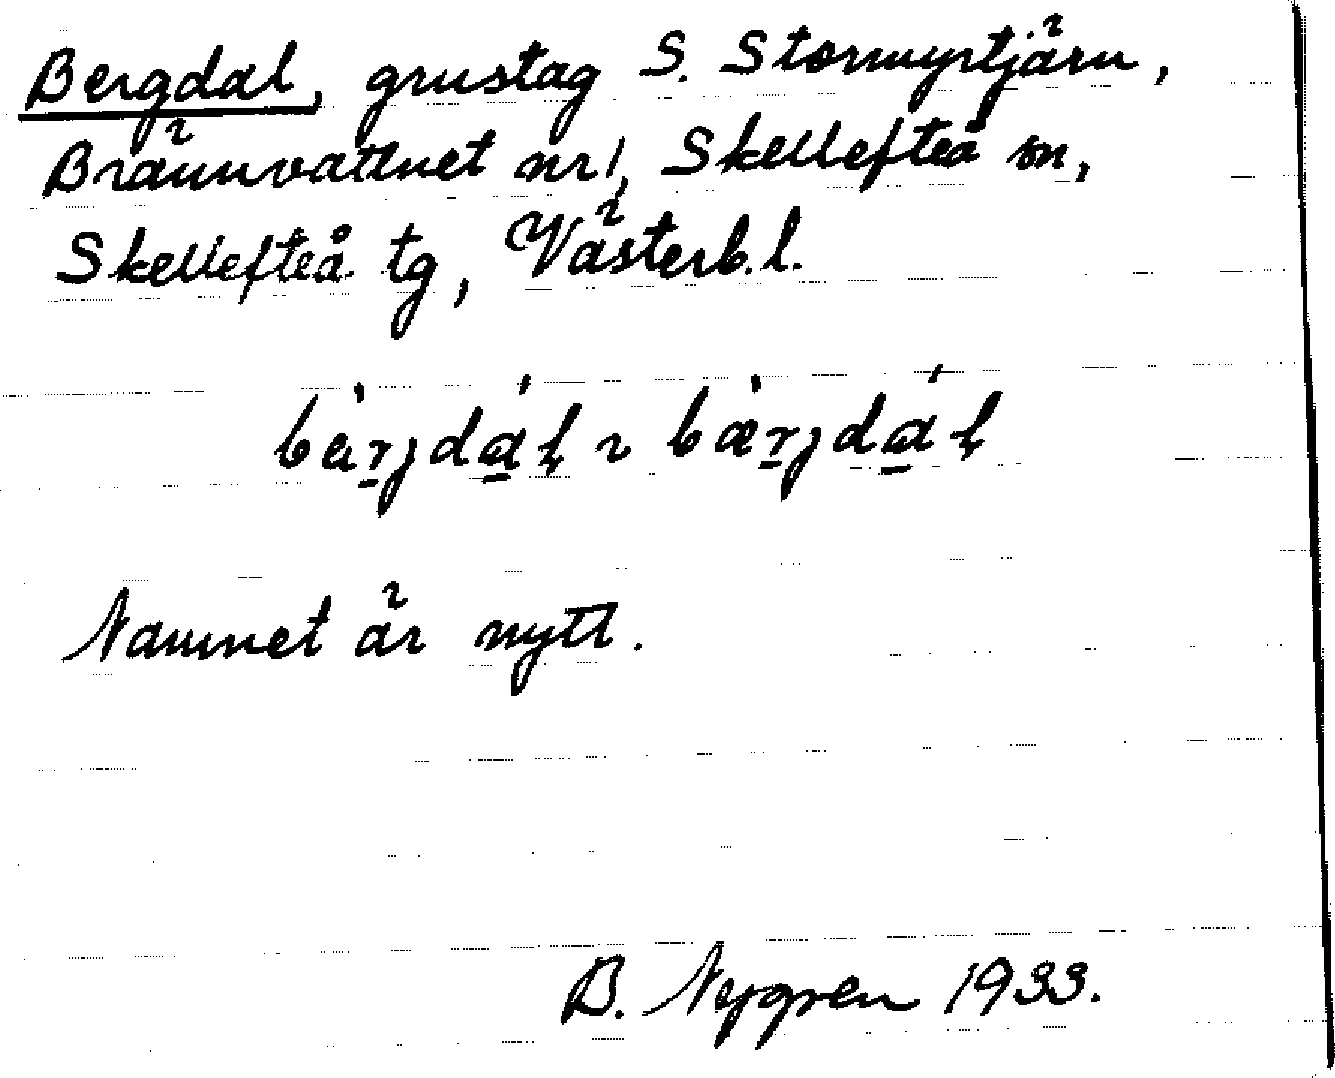 Bergdal, grustag S. Stormyrtjärn,
Brännvattnet nr 1, Skellefteå sn,
Skellefteå tg, Västerb. l.
Namnet är nytt.
B. Nygren 1933.